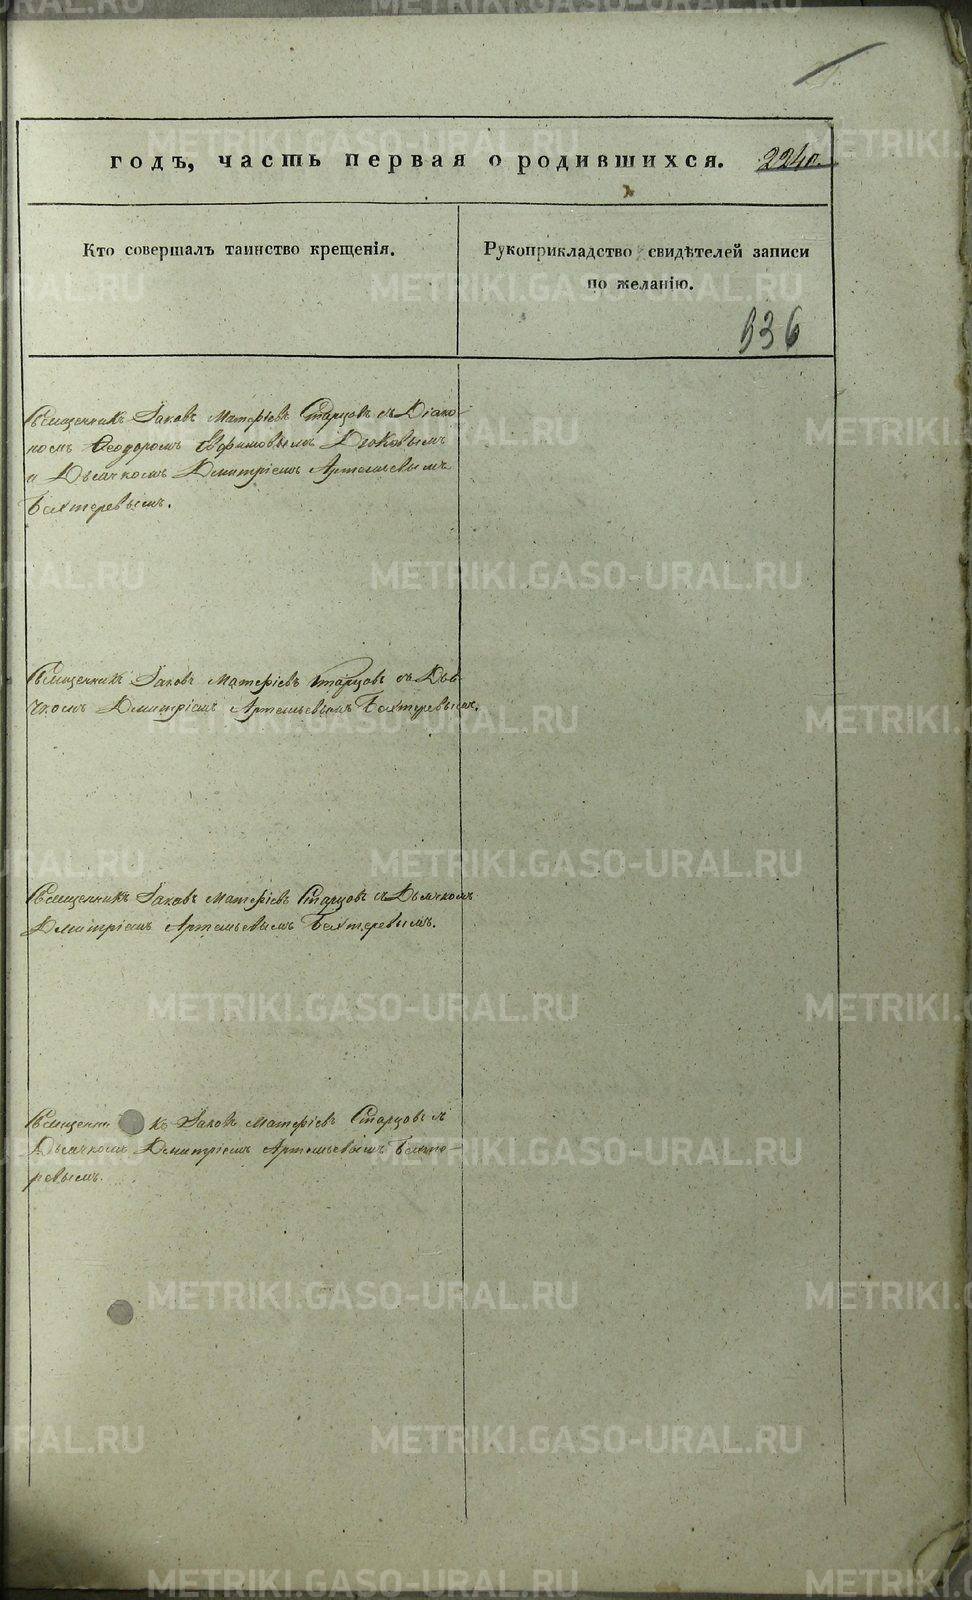 годъ, часть первая о родившихся.
Кто совершалъ таинство крещенія.
Рукоприкладство свидѣтелей записи
по желанію.
636
Священникъ Іаковъ Матѳіевъ Старцовъ съ Діако-
номъ Ѳеодоромъ Евфимовымъ
и Дьячкомъ Дмитріемъ Артемьевымъ
Бехтеревымъ.
Священникъ Іаковъ Матѳіевъ Старцовъ съ Дья-
чкомъ Дмитріемъ Артемьевымъ Бехтеревымъ.
Священникъ Іаковъ Матѳіевъ Старцовъ съ Дьячкомъ
Дмитріемъ Артемьевымъ Бехтеревымъ.
Священникъ Іаковъ Матѳіевъ Старцовъ съ
Дьячкомъ Дмитріемъ Артемьевымъ Бехте-
ревымъ.
METRIKI.GASO-URAL.RU